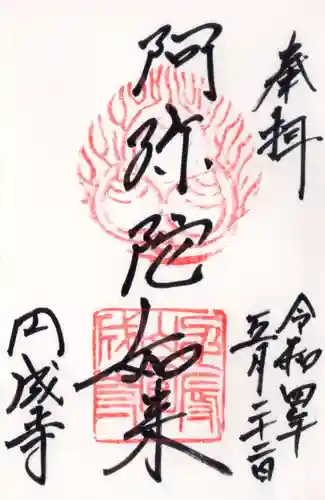 奉拝
令和四年
五月二十二日
阿弥陀如来
円成寺